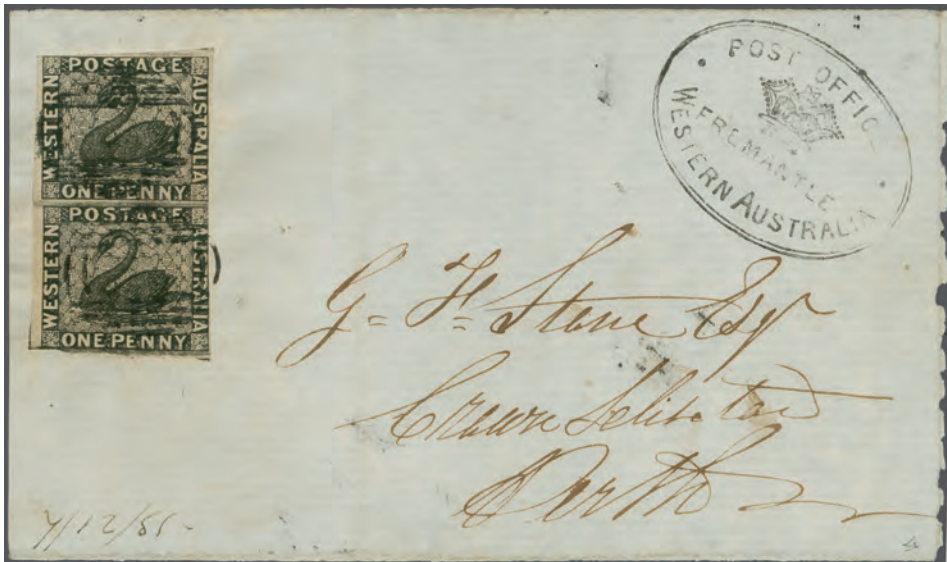 POSTAGE
WESTERN
AUSTRALIA
ONE PENNY
POSTAGE
WESTERN
AUSTRALIA
ONE PENNY
POST OFFIC
FREMANTLE
WESTERN AUSTRALIA
G= F= Stone Esq
Crown Solicitor
Perth
4